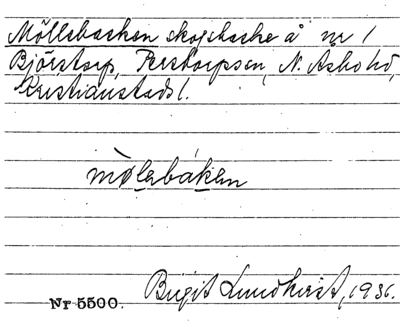 Möllebacken skogsbacke å nr 1
Björstorp, Perstorpssn, N. Åsbo hd,
Kristianstads l.
mø̀lebáken
Birgit Lundkvist, 1936.
Nr 5500.